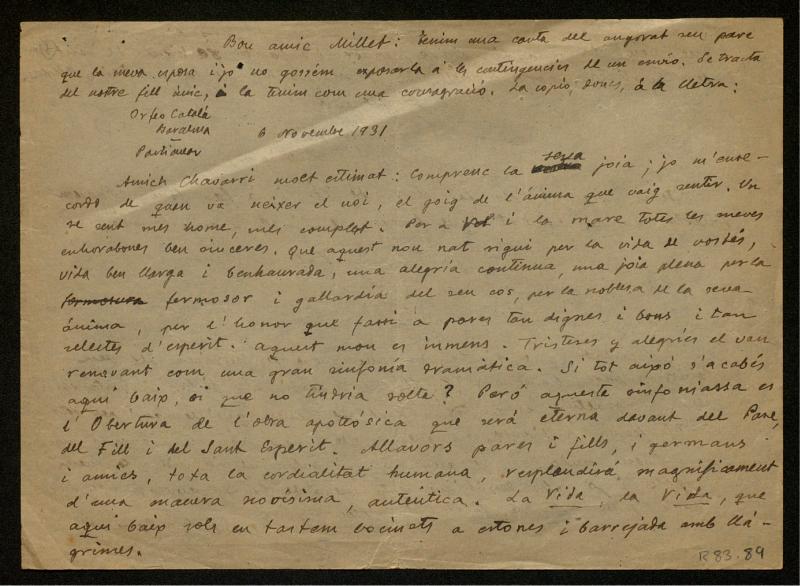 Bon amic Millet: Tenim una carta del angorat seu pare
que la meva esposa i jo no gossém exposarla á les contingencies de un envío. Se tracta
del nostre fill únic, i la tenim com una consagració. La copio, doncs, á la lletra:
Orfeó Catalá
Barcelona
Particular
6 Novembre 1931
Amich Chavarri molt estimat: Comprenc la seva joia; jo m'enre-
cordo de quan va neixer el noi, el goig de l'ánima que vaig sentir. Un
se sent mes home, més complet. Per a Vsté i la mare totes les meves
enhorabones ben sinceres. Que aquest nou nat sigui per la vida de vostés,
vida ben llarga i benhaurada, una alegría contínua, una joia plena per la
fermosura fermosor i gallardía del seu cos, per la noblesa de la seva
ánima, per l'honor que fassi a pares tan dignes i bons i tan
selectes d'esperit. Aquest mon es inmens. Tristeses y alegríes el van
renovant com una gran sinfonía dramática. Si tot aixó s'acabés
aquí baix, oi que no tindria solta? Peró aquesta sinfoniassa es
l'Obertura de l'obra apoteósica que será eterna davant del Pare,
del Fill i del Sant Esperit. Allavors pares i fills, i germans
i amics, tota la cordialitat humana, resplendirá magníficament
d'una manera novísima, auténtica. La Vida, la Vida, que
aquí baix sols en tastem bocinets a estones i barrejada amb llá-
grimes.
R 83.89